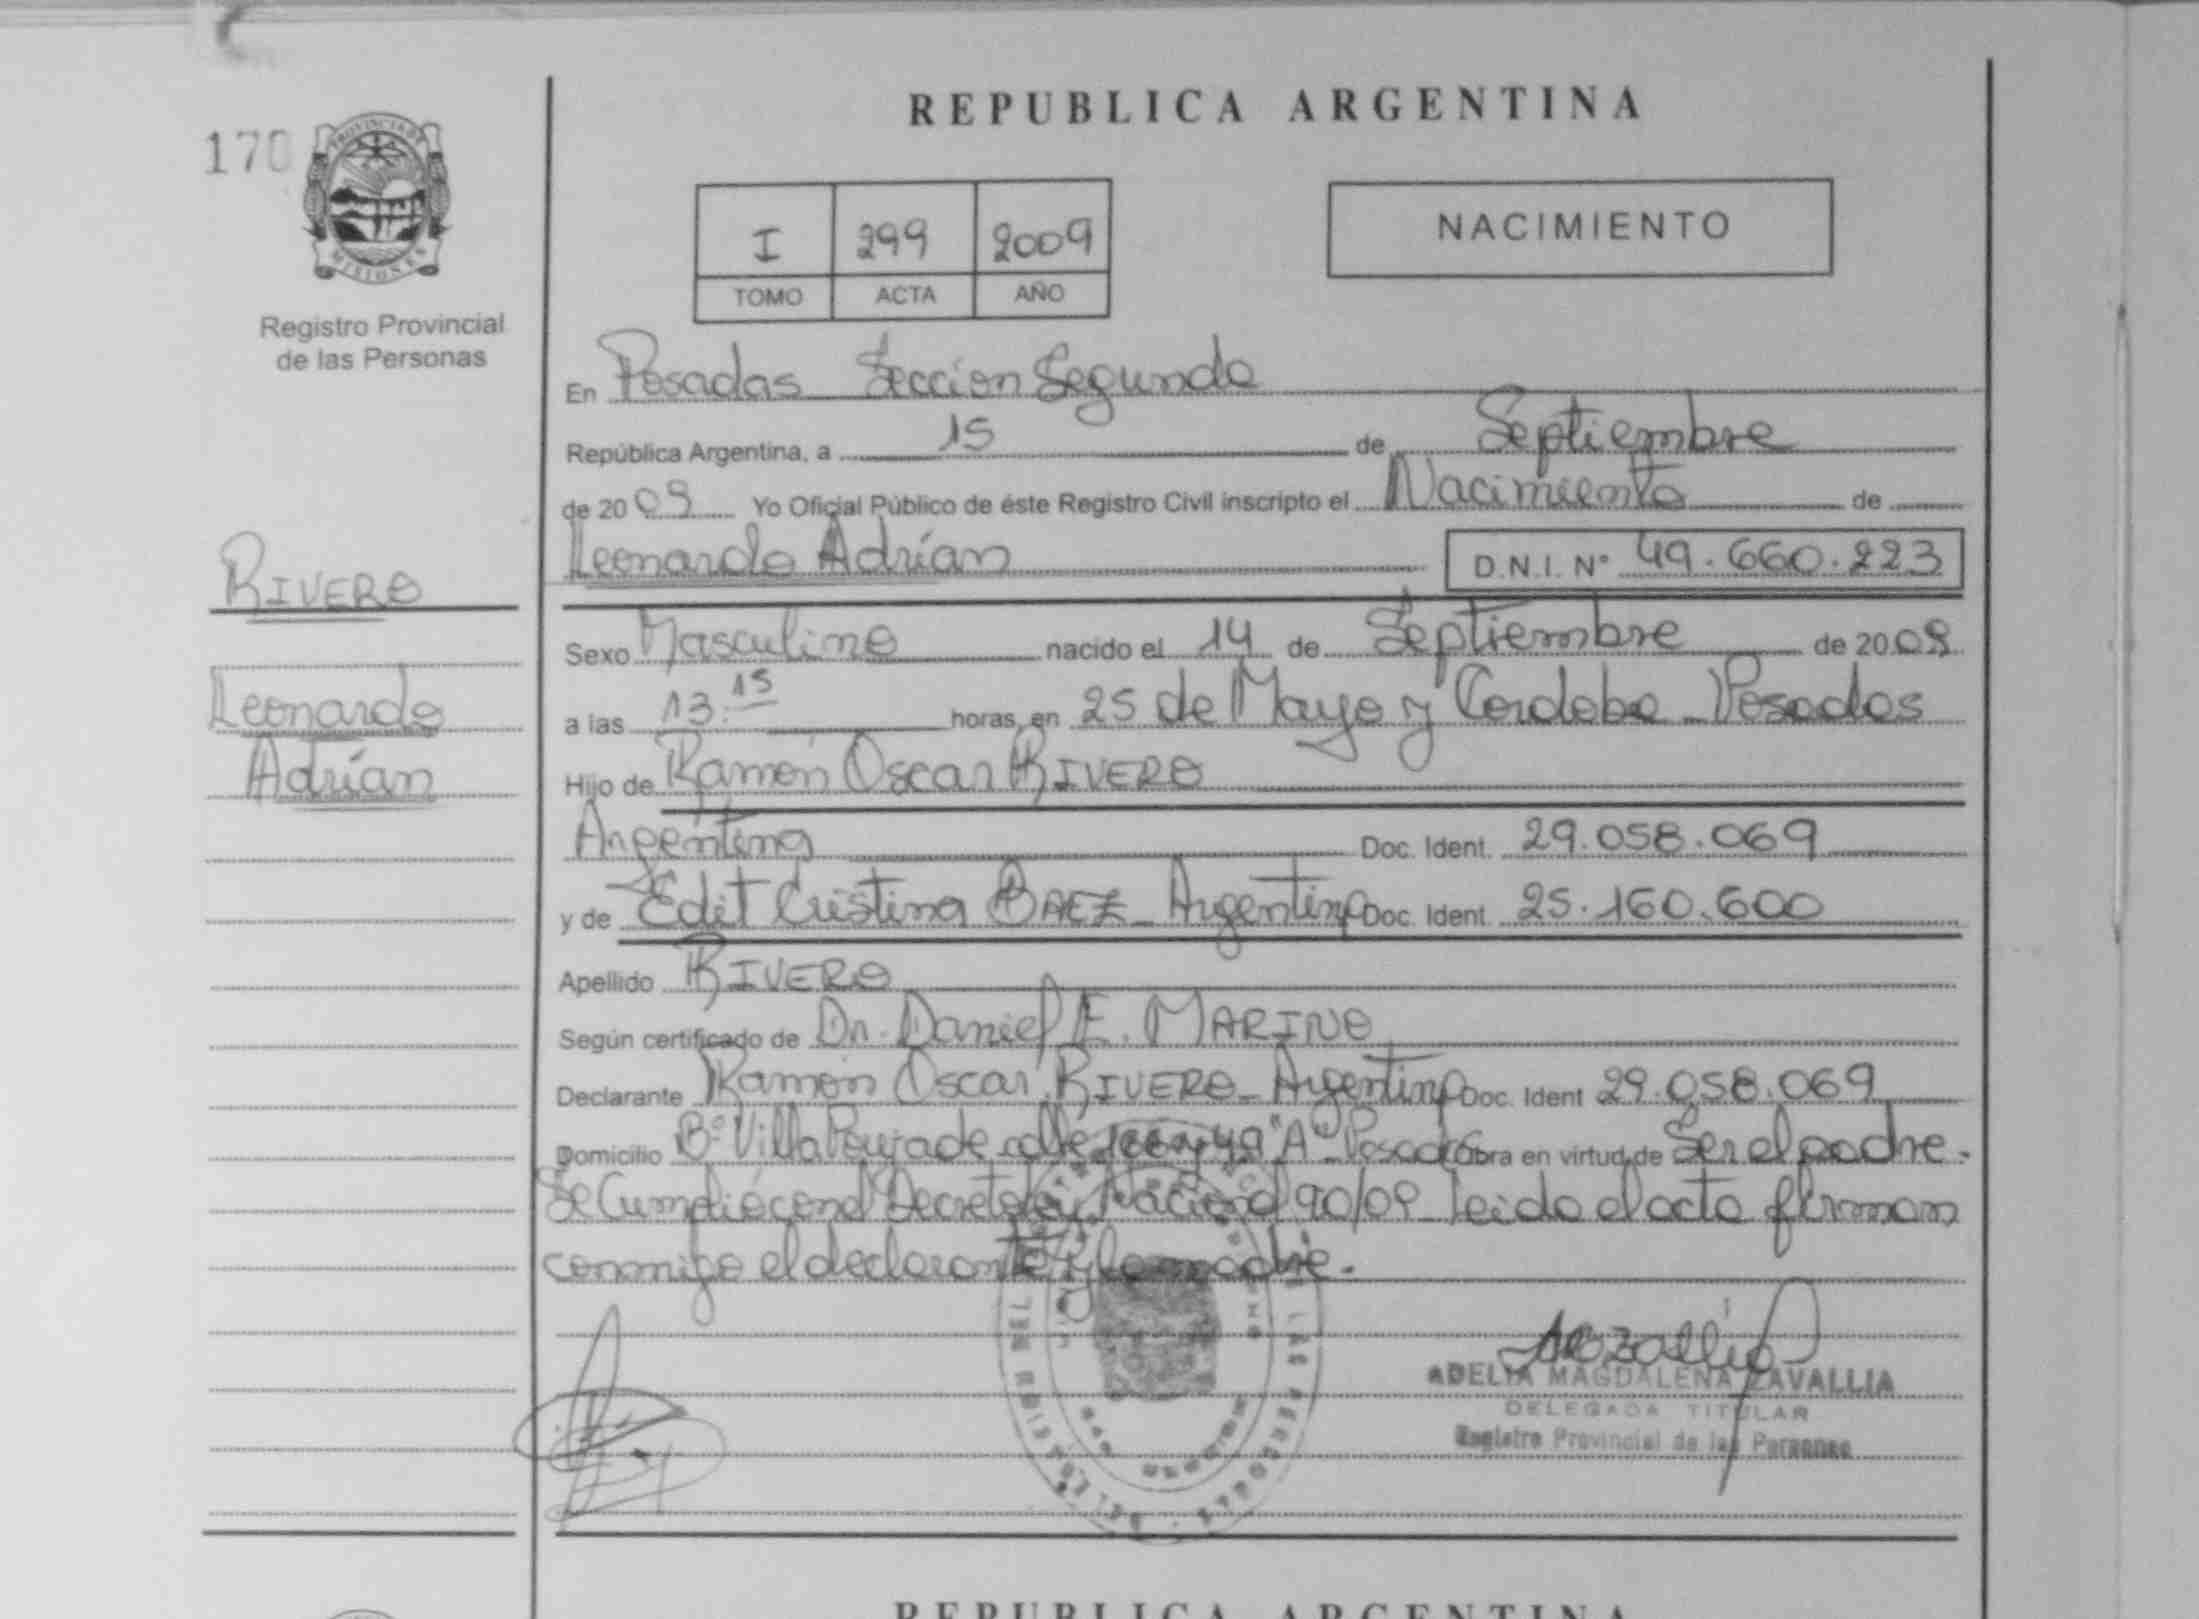 REPUBLICA ARGENTINA
170
PROVINCIA DE
MISIONES
Registro Provincial
de las Personas
I 299 2009
TOMO ACTA AÑO
NACIMIENTO
En Posadas Sección Segunda
República Argentina, a 15 de Septiembre
de 2009 Yo Oficial Público de éste Registro Civil inscripto el Nacimiento de
Leonardo Adrían D.N.I. Nº 49.660.223
RIVERO
Leonardo
Adrían
Sexo Masculino nacido el 14 de Septiembre de 2009
a las 13.15 horas, en 25 de Mayo y Cordoba - Posadas
Hijo de Ramón Oscar RIVERO
Argentino Doc. Ident. 29.058.069
y de Edit Cristina BAEZ - Argentina Doc. Ident. 25.160.600
Apellido RIVERO
Según certificado de Dr. Daniel E. MARINO
Declarante Ramón Oscar RIVERO - Argentino Doc. Ident 29.058.069
Domicilio Bº Villa Poujade calle y 49 "A" Posadas Obra en virtud de Ser el padre.
Se Cumplió con el Decreto Ley Nacional 90/09 Leido el acta firman
conmigo el declarante y la madre.
ADELIA MAGDALENA ZAVALLIA
DELEGADA TITULAR
Registro Provincial de las Personas
REPUBLICA ARGENTINA